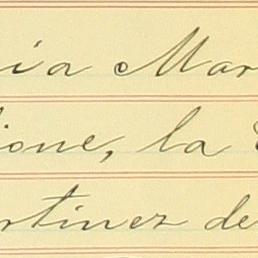 ia Mar
ione, la
rtinez de